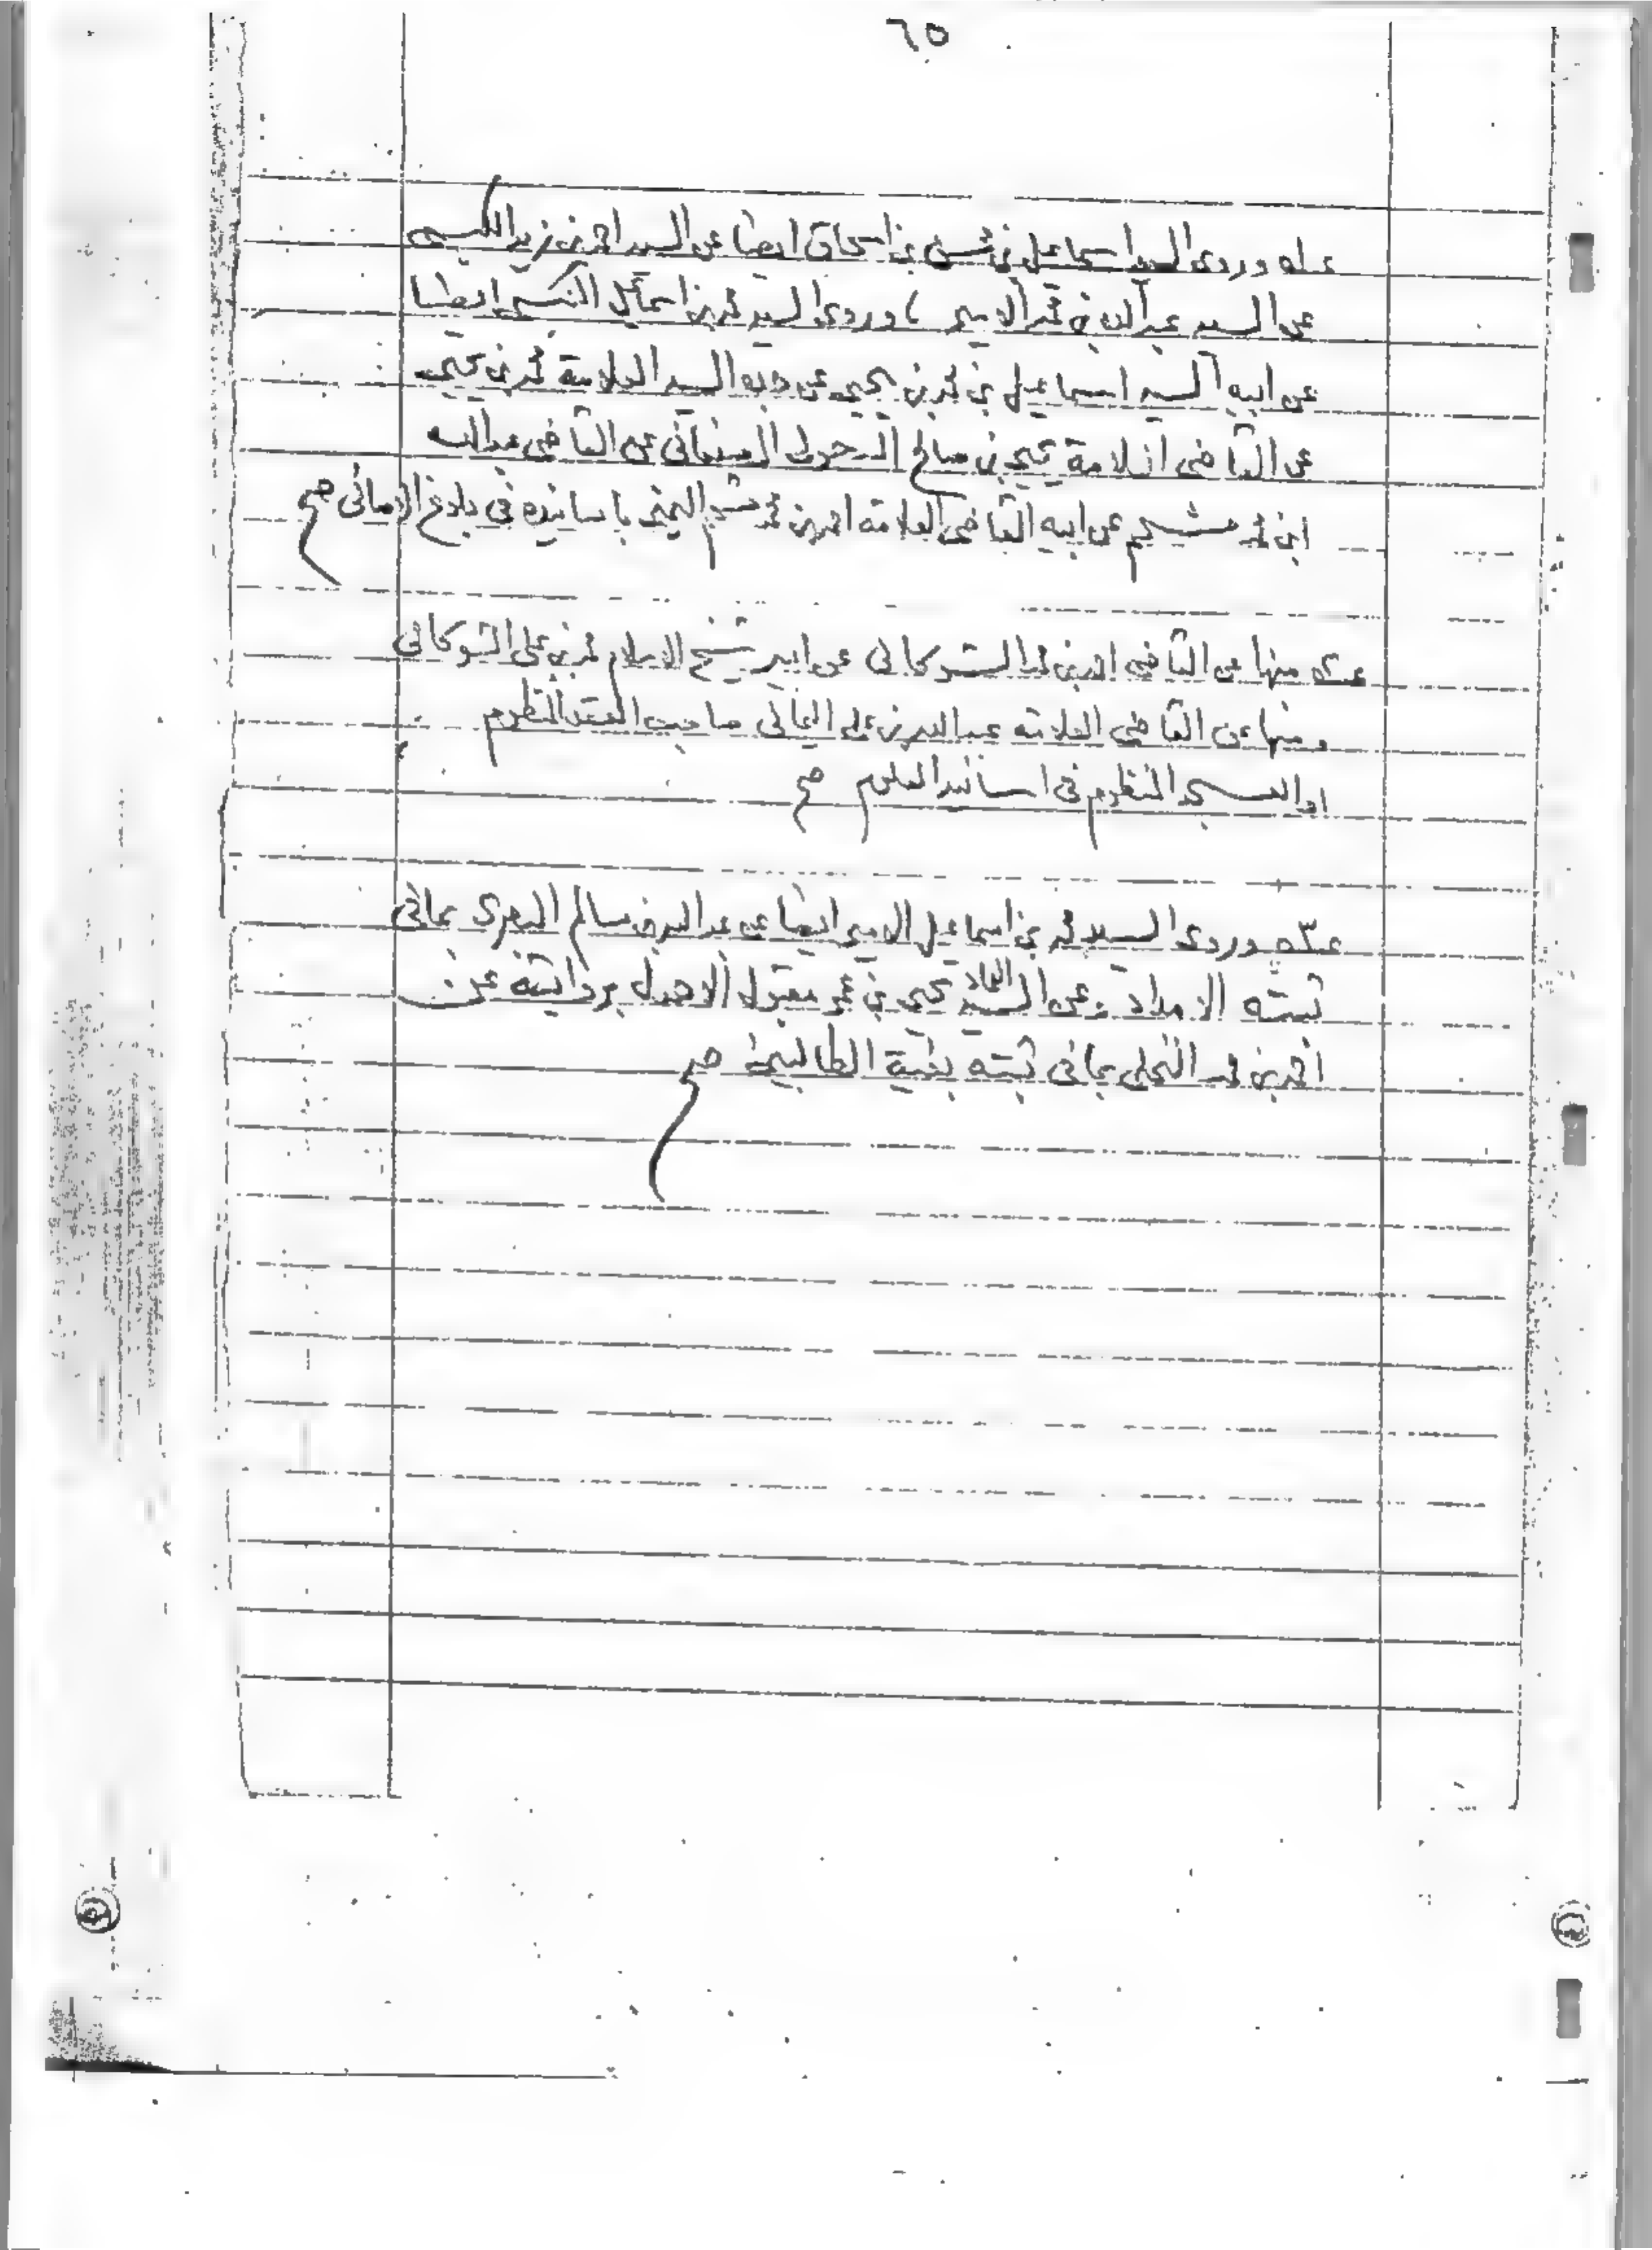 ٦٥
عله وروى السيد اسماعيل بن محسن بن اسحاق ايضا عن السيد احمد بن زيد الكبسي
عن السيد عبد الله بن محمد الامير، وروى السيد محمد بن اسماعيل الكبسي ايضا
عن ابيه السيد اسماعيل بن محمد بن يحيى عن جده السيد العلامة محمد بن يحيى
عن القاضي العلامة يحيى بن صالح السحولي الصنعاني عن القاضي عبد الله
ابن محمد مشحم عن ابيه القاضي العلامة احمد بن محمد مشحم اليمني باسانيده في بلوغ الاماني صح
منها عن القاضي احمد بن محمد الشوكاني عن ابيه شيخ الاسلام محمد بن علي الشوكاني
ومنها عن القاضي العلامة عبد الله بن علي الغالبي صاحب العقد المنظوم
او العسجد المنظوم في اسانيد العلوم صح
وروى السيد محمد بن اسماعيل الامير ايضا عن عبد الله بن سالم البصري بما في
ثبته الامداد وعن السيد العماد يحيى بن عمر مقبول الاهدل بروايته عن
احمد بن محمد النخلي بما في ثبته بغية الطالبين صح